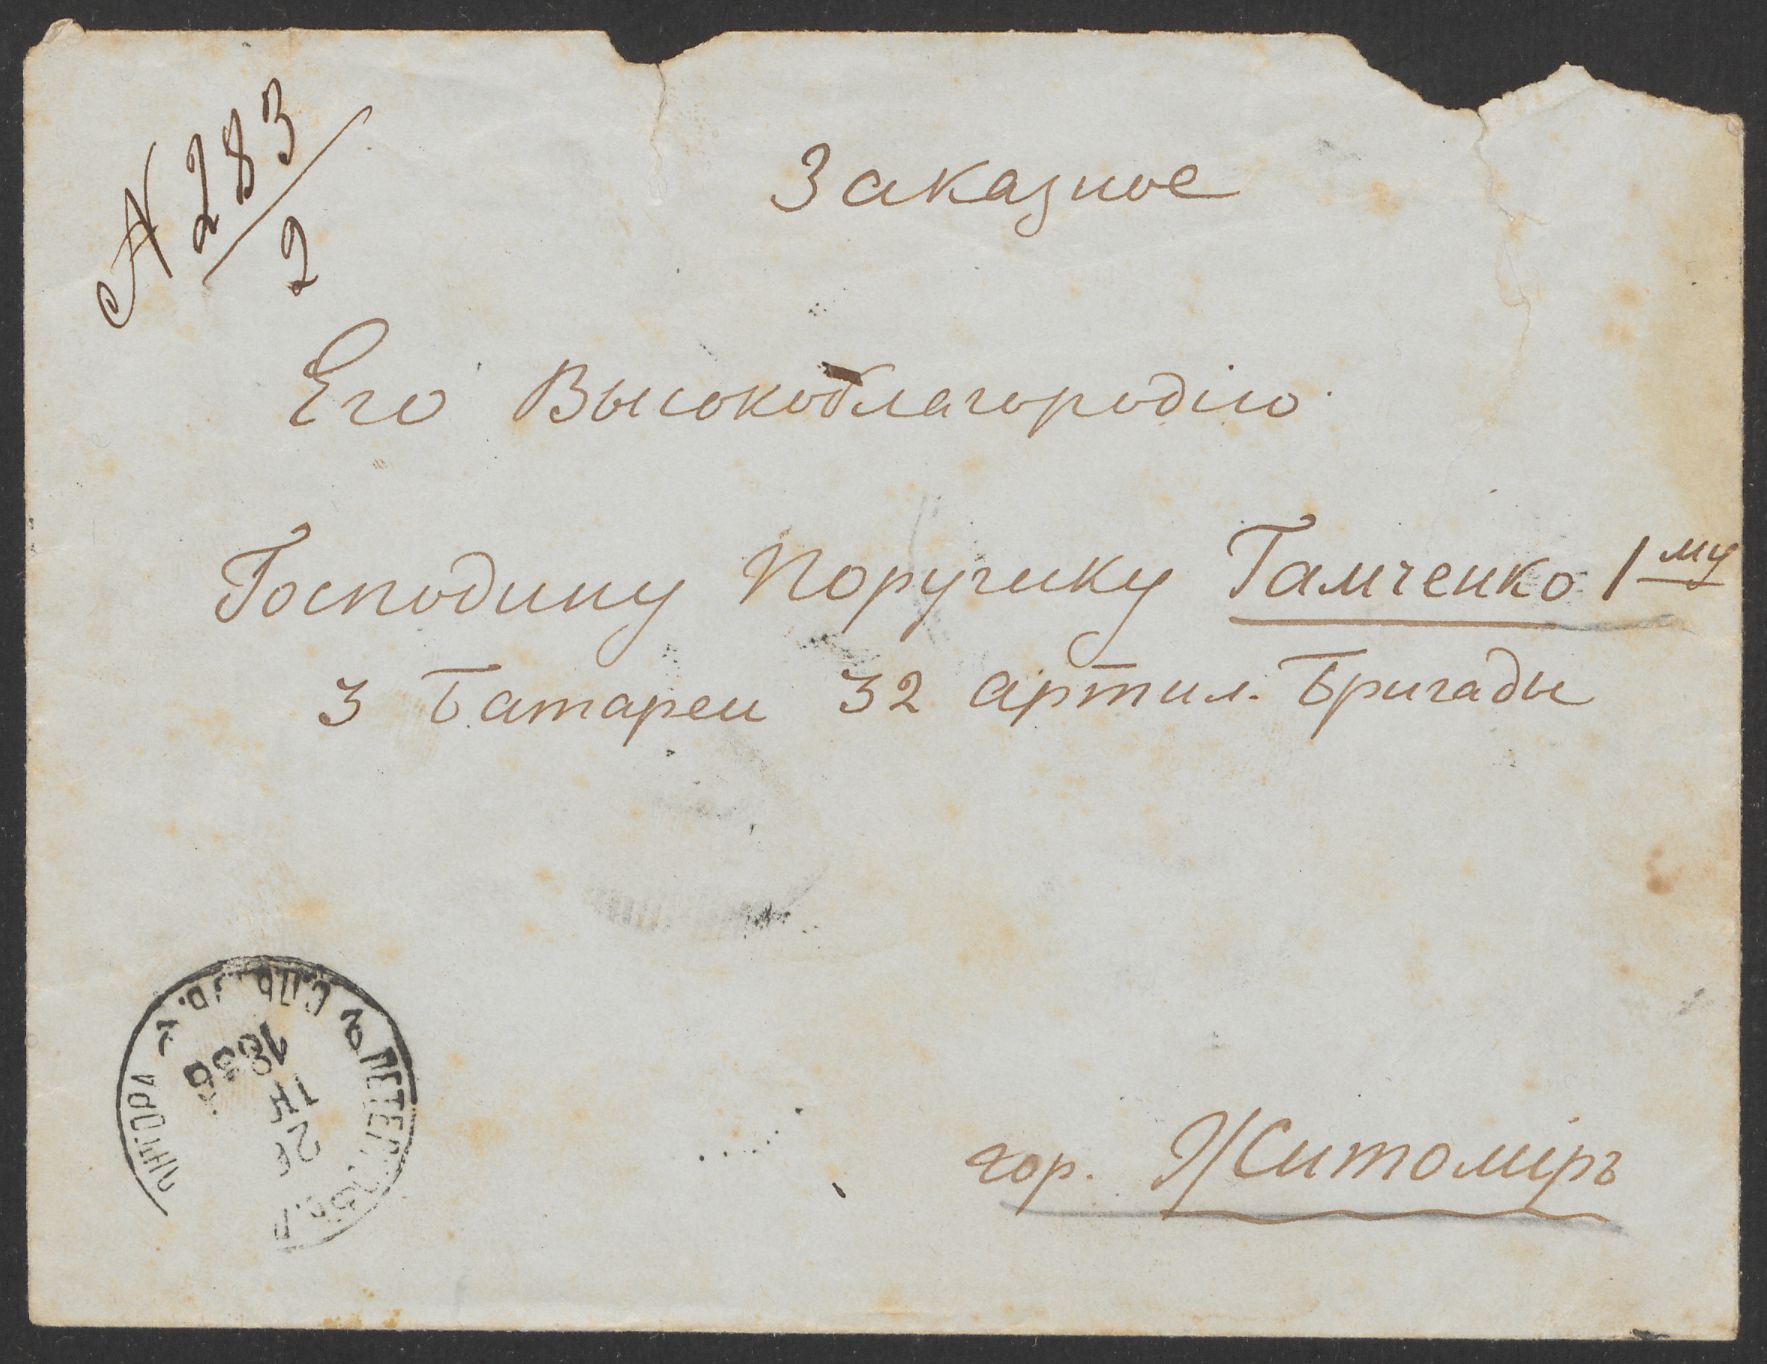 № 283/2
Заказное
Его Высокоблагородію
Господину Поручику Гамченко 1му
3 Батареи 32 артил. Бригады
гор. Житоміръ